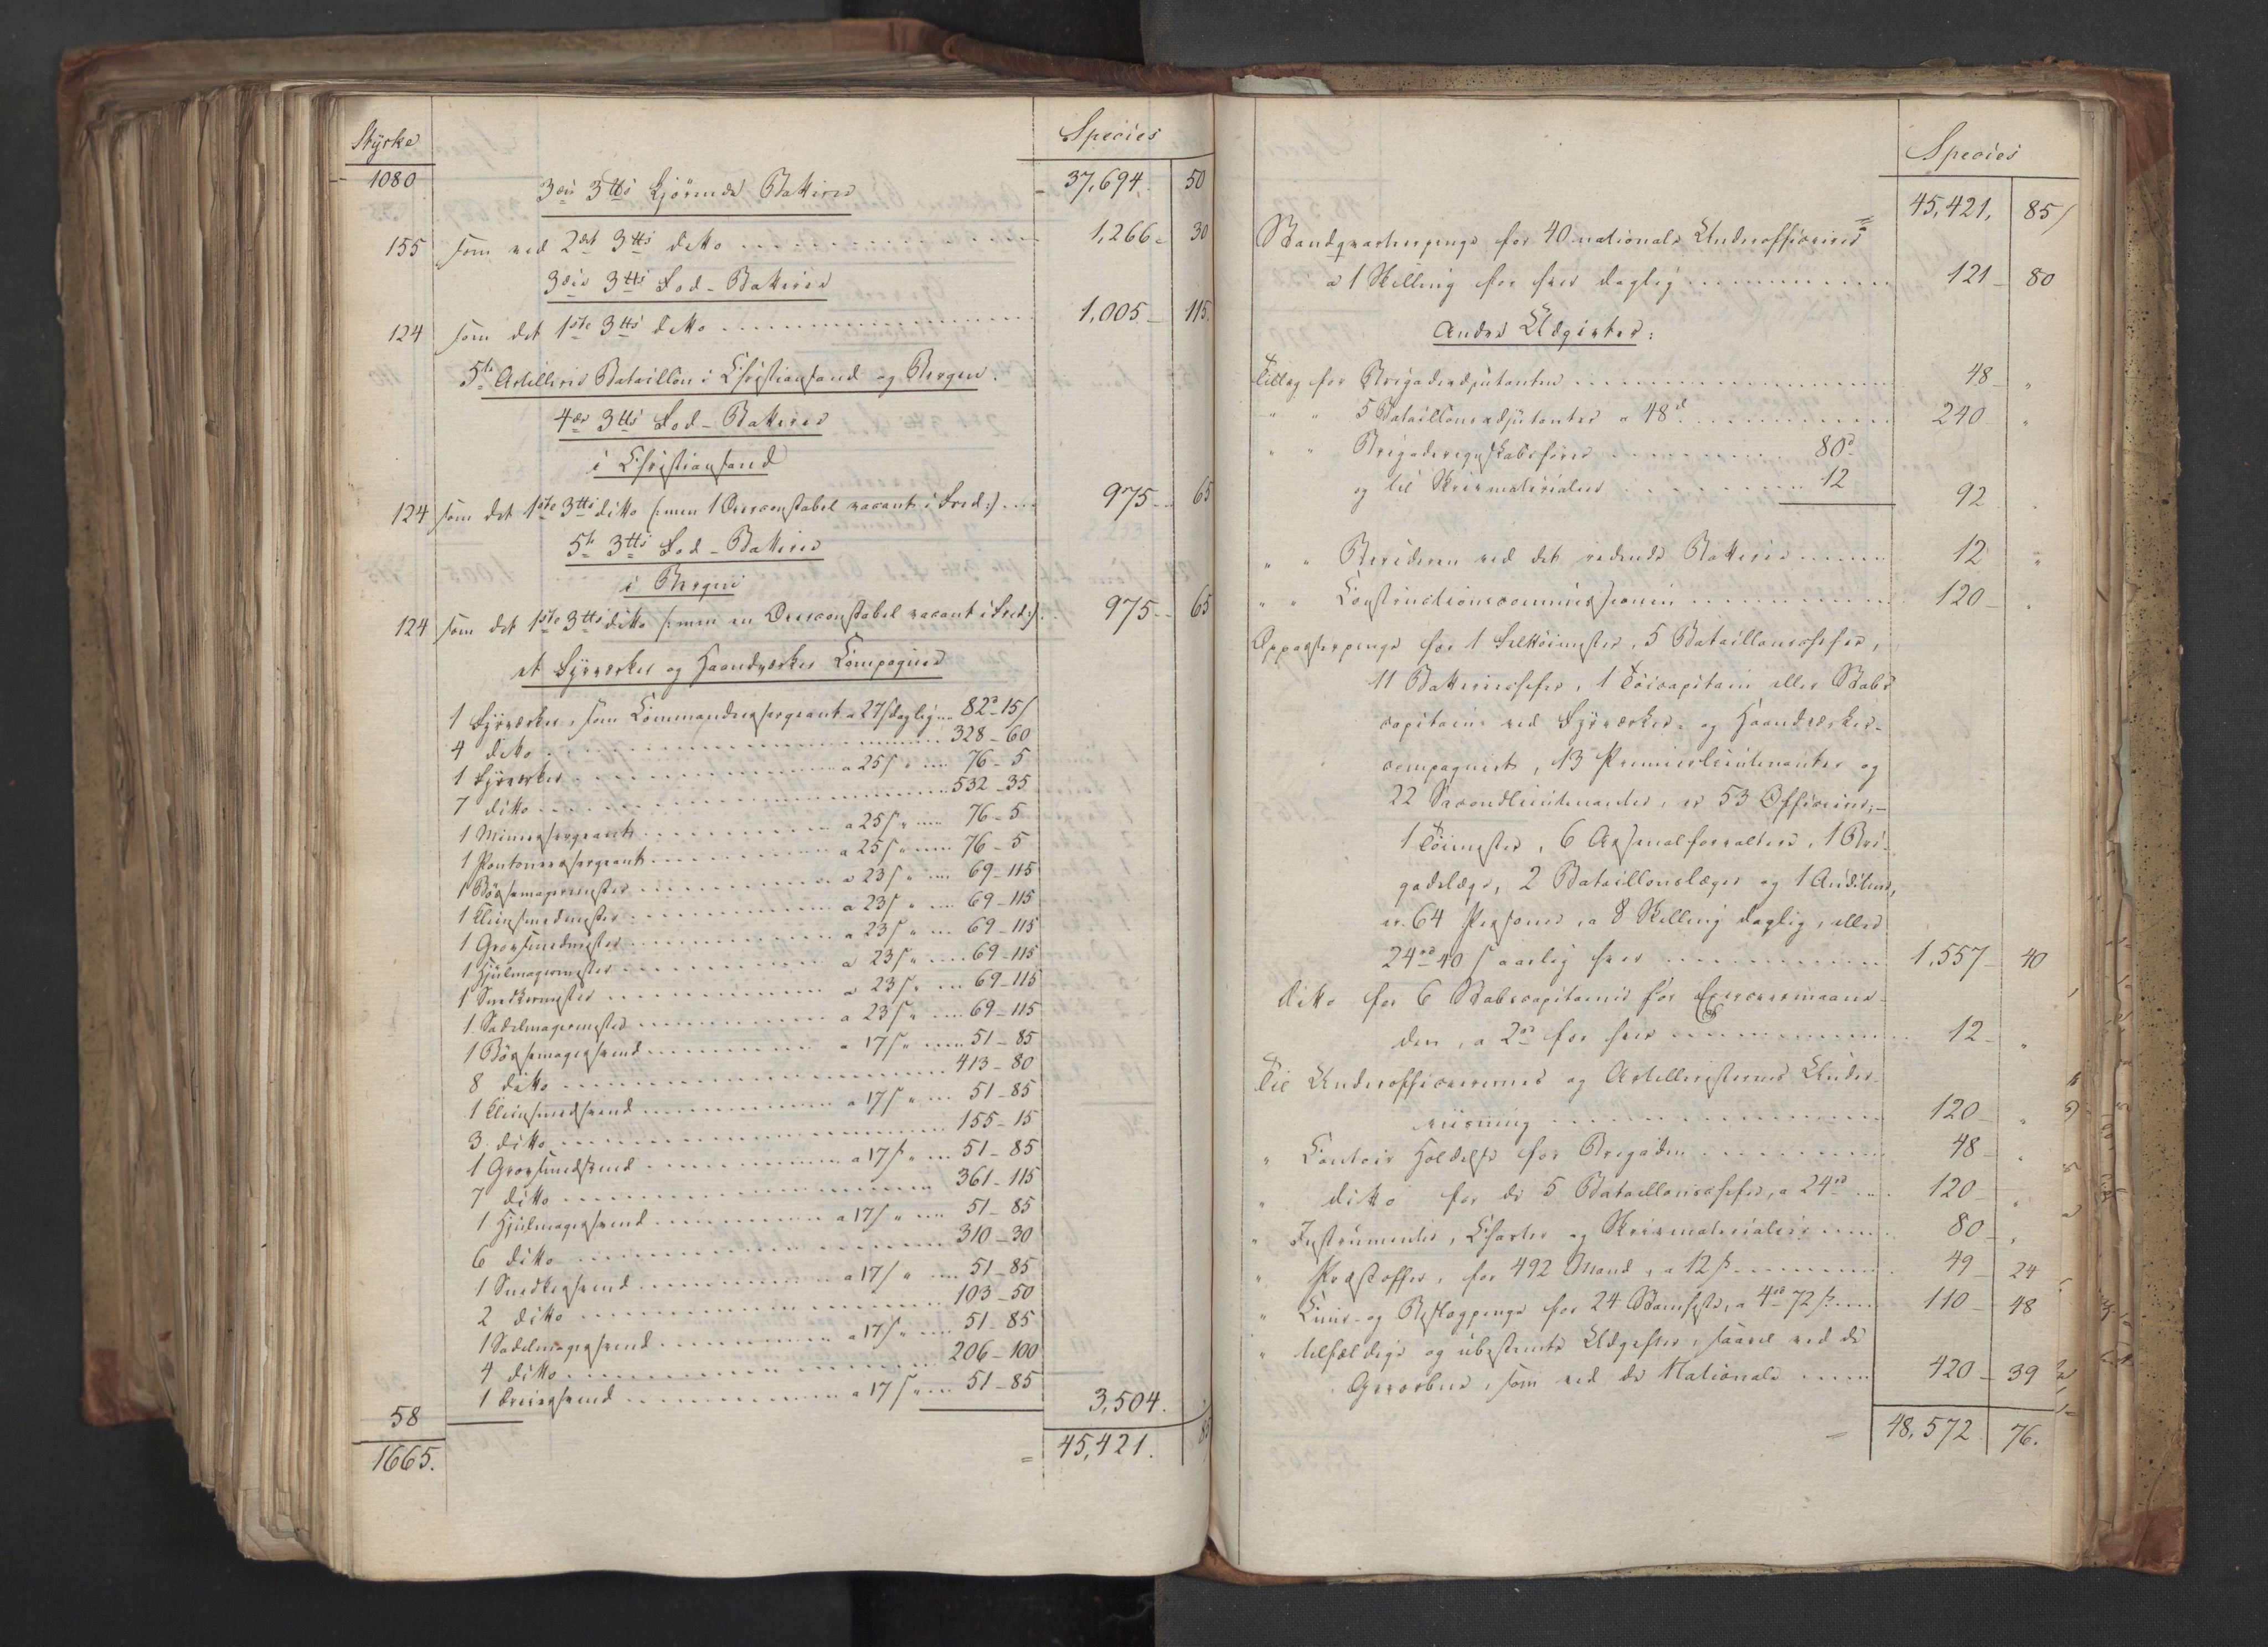 Styrke
Species
1080
3die 3tti kjörende Batterie
37,694. 50
155 som ved 2det 3tti ditto 1,266. 30
3die 3tti Fod-Batterie
124 som det 1ste 3tti ditto 1,005. 115.
5te Artillerie Bataillon i Christiansand og Bergen.
4de 3tti Fod-Batterie
i Christiansand
124 som det 1ste 3tti ditto (:men 1 Overconstabel vacant i Fred:) 975 65
5te 3tti Fod-Batterie
i Bergen
124 som det 1ste 3tti ditto (:men en Overconstabel vacant i Fred:) 975 65
et Fyrværker og Haandværker Compagnie
1 Fyrværker, som Commandeersergeant a 27 s daglig 82-15 s
4 ditto 328-60
1 Fyrværker a 25 s " 76-5
7 ditto 532-35
1 Mineersergeant a 25 s " 76-5
1 Pontoneersergeant a 25 s " 76-5
1 Bössemagermester a 23 s " 69-115
1 Kleinsmedmester a 23 s " 69-115
1 Grovsmedmester a 23 s " 69-115
1 Hjulmagermester a 23 s " 69-115
1 Snedkermester a 23 s " 69-115
1 Sadelmagermester a 23 s " 69-115
1 Bössemagersvend a 17 s " 51-85
8 ditto 413-80
1 Kleinsmedsvend a 17 s " 51-85
3 ditto 155-15
1 Grovsmedsvend a 17 s " 51-85
7 ditto 361-115
1 Hjulmagersvend a 17 s " 51-85
6 ditto 310-30
1 Snedkersvend a 17 s " 51-85
2 ditto 103-50
1 Sadelmagersvend a 17 s " 51-85
4 ditto 206-100
1 Dreiersvend a 17 s " 51-85
58 3,504.
1665. = 45,421. 85
Species
45,421. 85 s
Standqvarteerpenge for 40 nationale Underofficierer
a 1 Skilling for hver daglig 121 80
Andre Udgivter:
Tillæg for Brigadeadjutanten 48 "
" " 5 Bataillonsadjutanter a 48 240 "
" " Brigaderegnskabsförer 80
og til Skrivmaterialier 12 92 "
" " Berideren ved det ridende Batterie 12 "
" " Constructionscommissionen 120 "
Oppasserpenge for 1 Felttöimester, 5 Bataillonschefer,
11 Batterichefer, 1 Töicapitain eller Stabs
capitain ved Fyrværker- og Haandværker-
compagniet, 13 Premierlieutenanter og
22 Secondlieutenanter, er 53 Officerer, -
1 Töimester, 6 Arsenalforvaltere, 1 Bri-
gadelæge, 2 Bataillonslæger og 1 Auditeur,
er 64 Personer, a 8 Skilling daglig, eller
24 40 s aarlig hver 1,557 40
ditto for 6 Stabscapitainer for Exerceermaane-
den, a 2 for hver 12 "
Til Underofficerernes og Artilleristernes Under-
viisning 120 "
" Contoir Holdelse for Brigaden 48 "
" ditto for de 5 Bataillonschefer, a 24 120 "
" Instrumenter, Charter og Skrivmaterialier 80 "
" Præstoffer, for 492 Mand, a 12 s 49 24
" Kuur- og Beslagpenge for 24 Stamheste, a 4 72 s 110 48
" tilfældige og ubestemte Udgifter, saavel ved de
Gevorbne, som ved de Nationale 420 39
= 48,572 76.